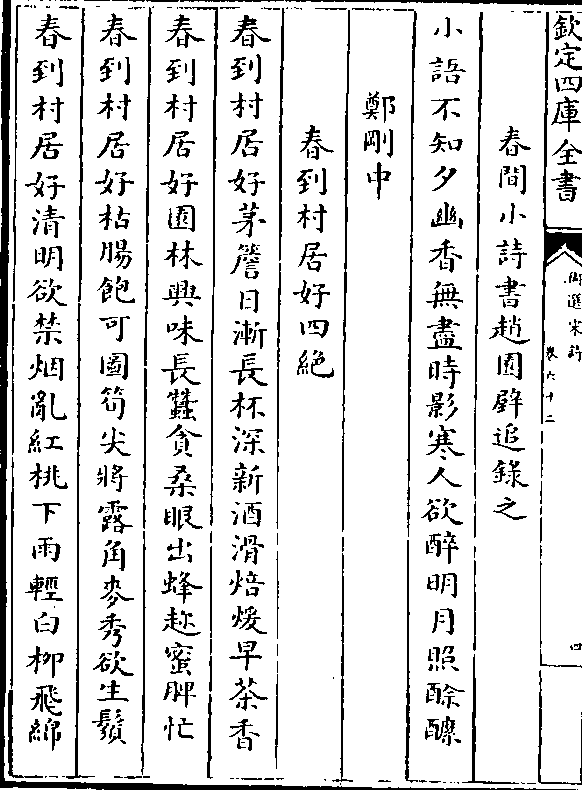 欽定四庫全書
御選宋詩
卷六十二
四
春間小詩書趙園壁追錄之
小語不知夕幽香無盡時影寒人欲醉明月照酴醾
鄭剛中
春到村居好四絕
春到村居好茅簷日漸長杯深新酒滑焙煖早茶香
春到村居好園林興味長蠶貪桑眼出蜂趂蜜脾忙
春到村居好枯腸飽可圖筍尖將露角麥秀欲生鬚
春到村居好清明欲禁烟亂紅桃下雨輕白柳飛綿